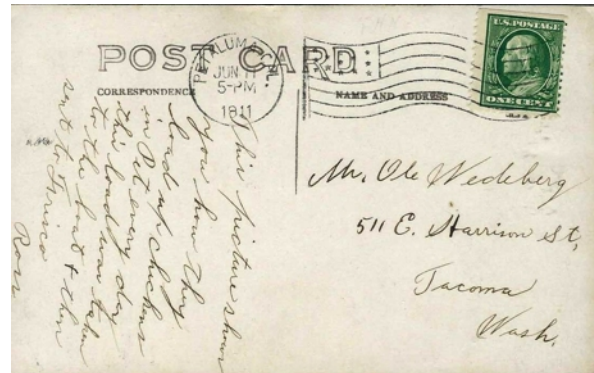 POST CARD
CORRESPONDENCE
NAME AND ADDRESS
PETALUMA, CAL.
JUN 11
5-PM
1911
U.S. POSTAGE
ONE CENT
This picture shows
you how they
load up chickens
in Pet every day
this load of
to the boat & then
sent to Frisco
Ross
Mr. Ole Wedeberg
511 E. Harrison St,
Tacoma
Wash.